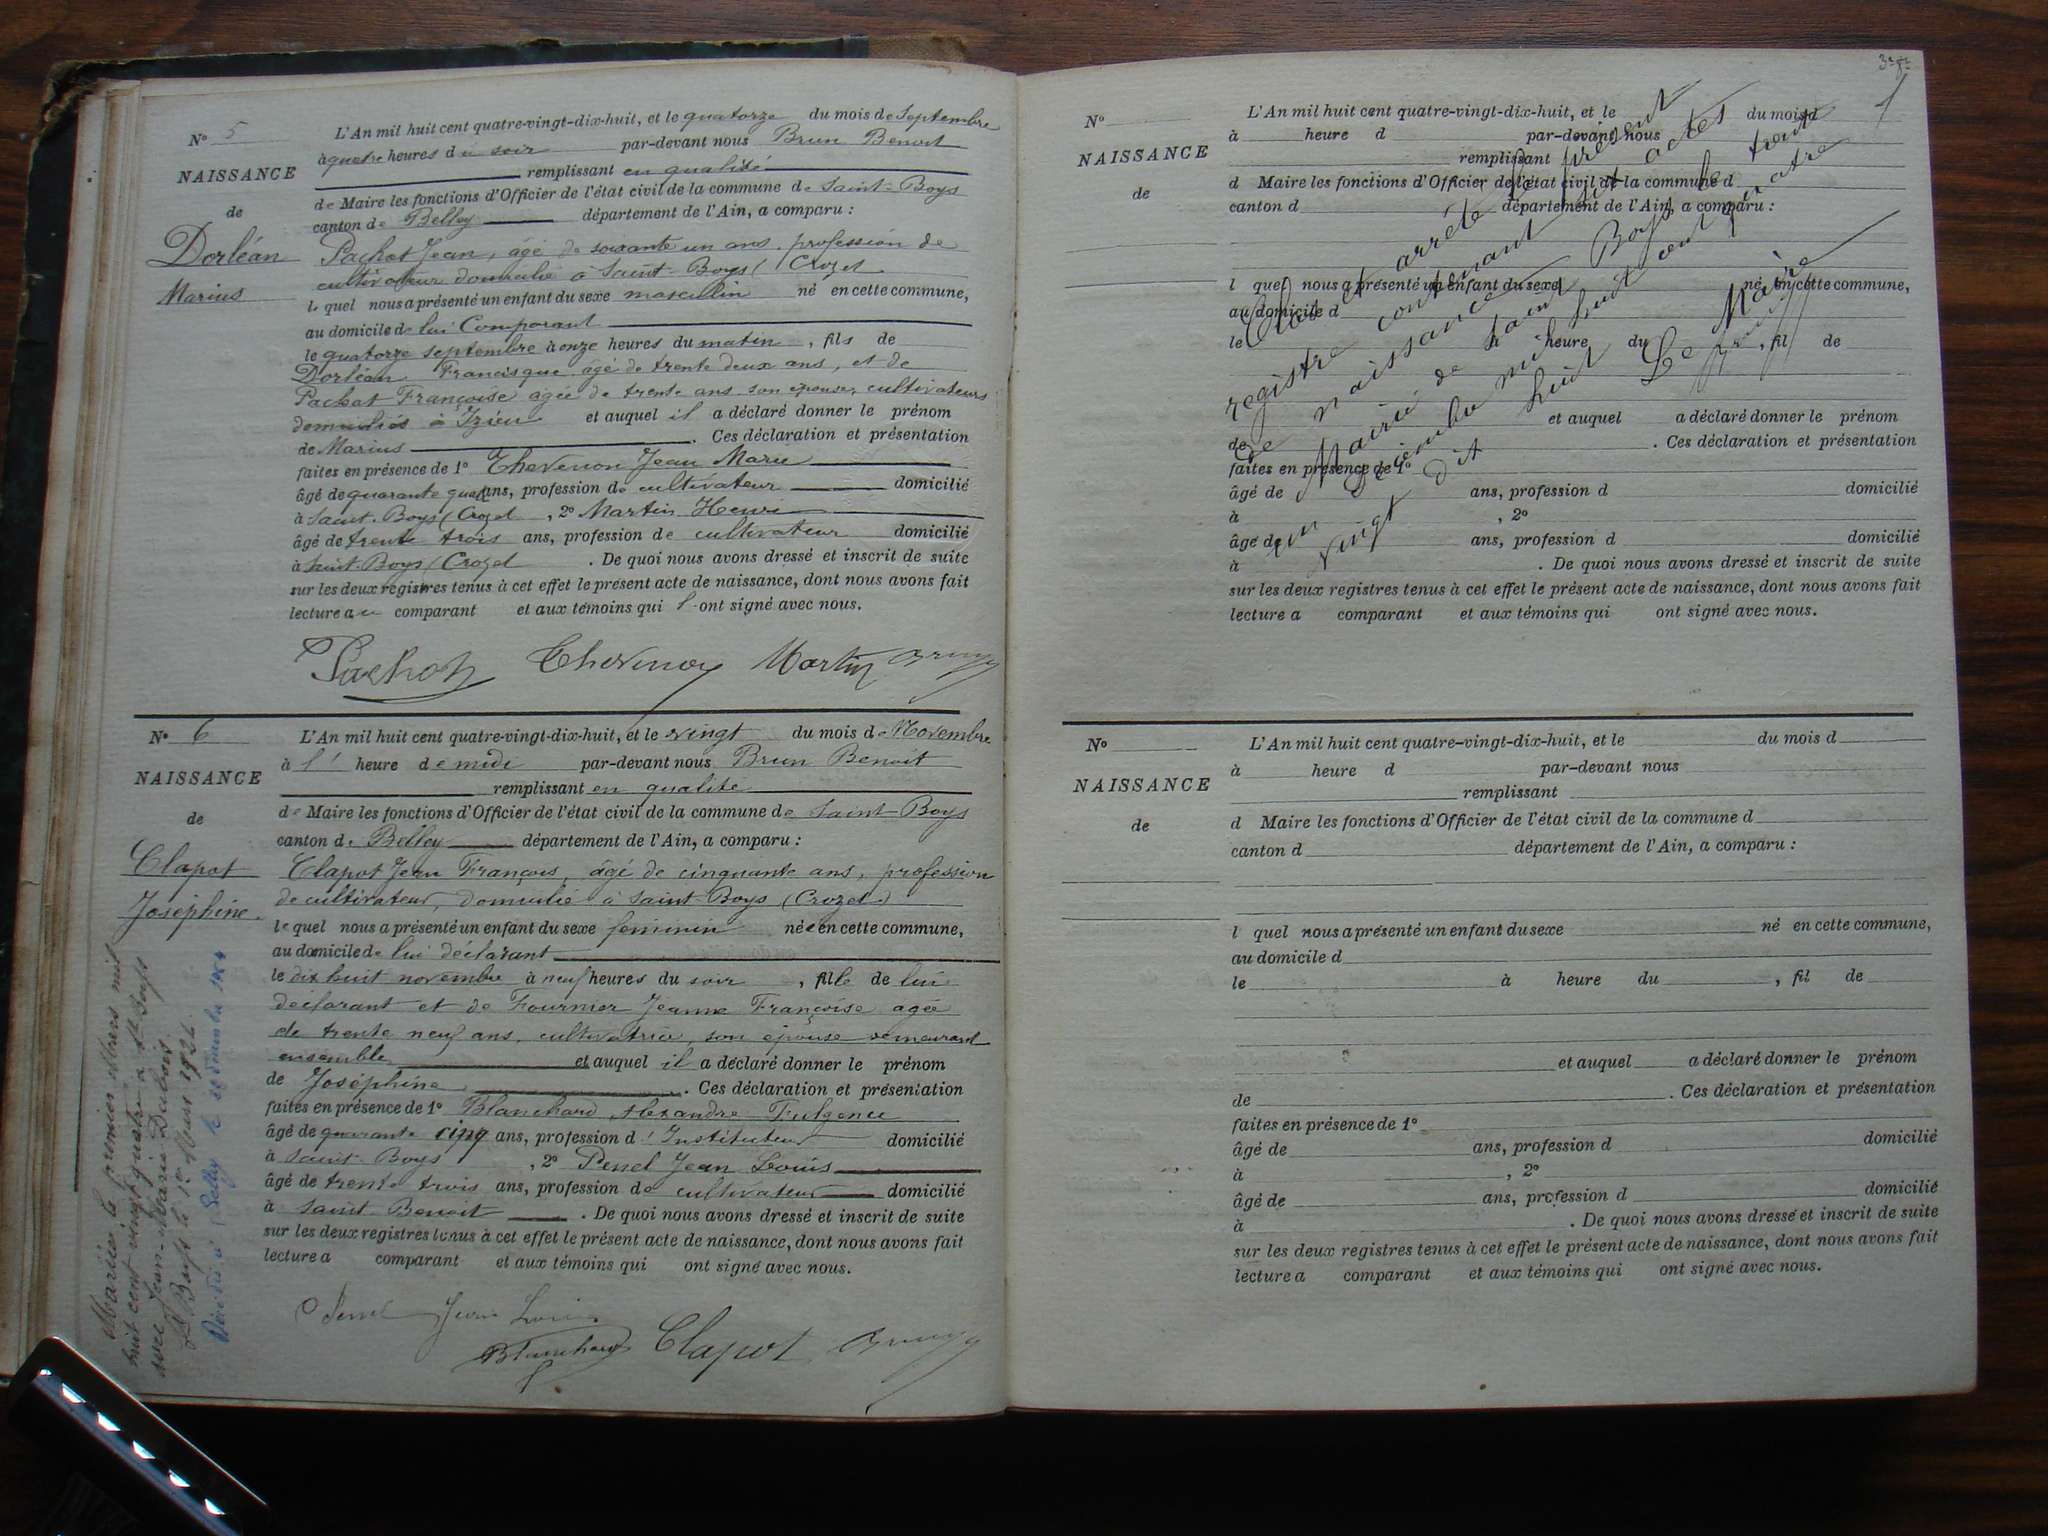 N° 5
NAISSANCE
de
Dorléan
Marius
L'An mil huit cent quatre-vingt-dix-huit, et le quatorze du mois de Septembre
à quatre heures du soir par-devant nous Brun Benoit
remplissant en qualité
de Maire les fonctions d'Officier de l'état civil de la commune de Saint-Boys
canton de Belley département de l'Ain, a comparu :
Pachot Jean, âgé de soixante un ans, profession de
cultivateur domicilié à Saint-Boys (Crozet
lequel nous a présenté un enfant du sexe masculin né en cette commune,
au domicile de lui Comparant
le quatorze septembre à onze heures du matin, fils de
Dorléan Francisque, âgé de trente deux ans, et de
Pachot Françoise âgée de trente ans son épouse, cultivateurs
domiciliés à Izieu et auquel il a déclaré donner le prénom
de Marius. Ces déclaration et présentation
faites en présence de 1° Thevenon Jean Marie
âgé de quarante quatre ans, profession de cultivateur domicilié
à Saint-Boys (Crozet, 2° Martin Henri
âgé de trente trois ans, profession de cultivateur domicilié
à Saint-Boys (Crozet. De quoi nous avons dressé et inscrit de suite
sur les deux registres tenus à cet effet le présent acte de naissance, dont nous avons fait
lecture au comparant et aux témoins qui l'ont signé avec nous.
Pachot Thevenon Martin Brun
N° 6
NAISSANCE
de
Clapot
Joséphine
L'An mil huit cent quatre-vingt-dix-huit, et le vingt du mois de Novembre
à l' heure de midi par-devant nous Brun Benoit
remplissant en qualité
de Maire les fonctions d'Officier de l'état civil de la commune de Saint-Boys
canton de Belley département de l'Ain, a comparu :
Clapot Jean François, âgé de cinquante ans, profession
de cultivateur, domicilié à Saint-Boys (Crozet)
lequel nous a présenté un enfant du sexe feminin née en cette commune,
au domicile de lui déclarant
le dix huit novembre à neuf heures du soir, fille de lui
déclarant et de Fournier Jeanne Françoise agée
de trente neuf ans, cultivatrice, son épouse demeurant
ensemble et auquel il a déclaré donner le prénom
de Joséphine. Ces déclaration et présentation
faites en présence de 1° Blanchard Alexandre Fulgence
âgé de quarante cinq ans, profession d'Instituteur domicilié
à Saint-Boys, 2° Penel Jean Louis
âgé de trente trois ans, profession de cultivateur domicilié
à Saint Benoit. De quoi nous avons dressé et inscrit de suite
sur les deux registres tenus à cet effet le présent acte de naissance, dont nous avons fait
lecture a comparant et aux témoins qui ont signé avec nous.
Penel Jean Louis
Blanchard Clapot Brun
Mariée le premier Mars mil
huit cent vingt quatre à St Boys
avec Jean-Marie Dubois
St Boys le 1er Mars 1924
Décédée à Belley le
N°
NAISSANCE
de
L'An mil huit cent quatre-vingt-dix-huit, et le du mois d
à heure d par-devant nous
remplissant
d Maire les fonctions d'Officier de l'état civil de la commune d
canton d département de l'Ain, a comparu :
l quel nous a présenté un enfant du sexe né en cette commune,
au domicile d
le à heure du , fil de
et auquel a déclaré donner le prénom
de . Ces déclaration et présentation
faites en présence de 1°
âgé de ans, profession d domicilié
à , 2°
âgé de ans, profession d domicilié
à . De quoi nous avons dressé et inscrit de suite
sur les deux registres tenus à cet effet le présent acte de naissance, dont nous avons fait
lecture a comparant et aux témoins qui ont signé avec nous.
Clos et arrêté le présent
registre contenant six actes
de naissance
Mairie de Saint Boys le trente
un Décembre mil huit cent quatre
vingt dix huit
Le Maire
Brun
N°
NAISSANCE
de
L'An mil huit cent quatre-vingt-dix-huit, et le du mois d
à heure d par-devant nous
remplissant
d Maire les fonctions d'Officier de l'état civil de la commune d
canton d département de l'Ain, a comparu :
l quel nous a présenté un enfant du sexe né en cette commune,
au domicile d
le à heure du , fil de
et auquel a déclaré donner le prénom
de . Ces déclaration et présentation
faites en présence de 1°
âgé de ans, profession d domicilié
à , 2°
âgé de ans, profession d domicilié
à . De quoi nous avons dressé et inscrit de suite
sur les deux registres tenus à cet effet le présent acte de naissance, dont nous avons fait
lecture a comparant et aux témoins qui ont signé avec nous.